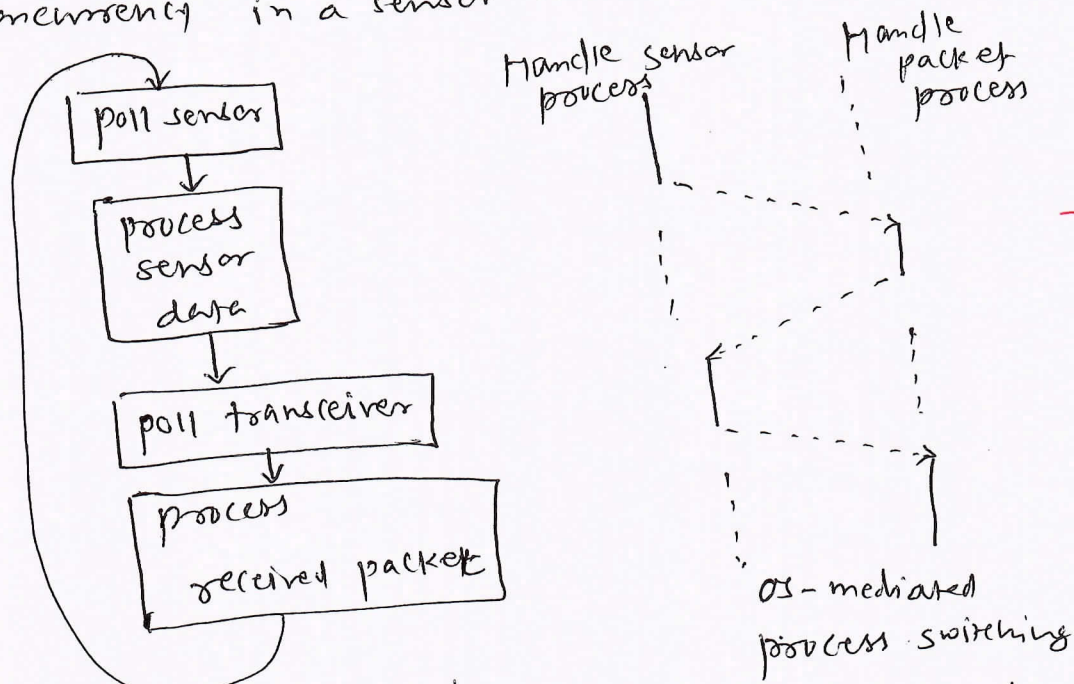 in a sensor
poll sensor
process
sensor
data
poll transceiver
process
received packet
Handle sensor
process
Handle
packet
process
OS-mediated
process switching